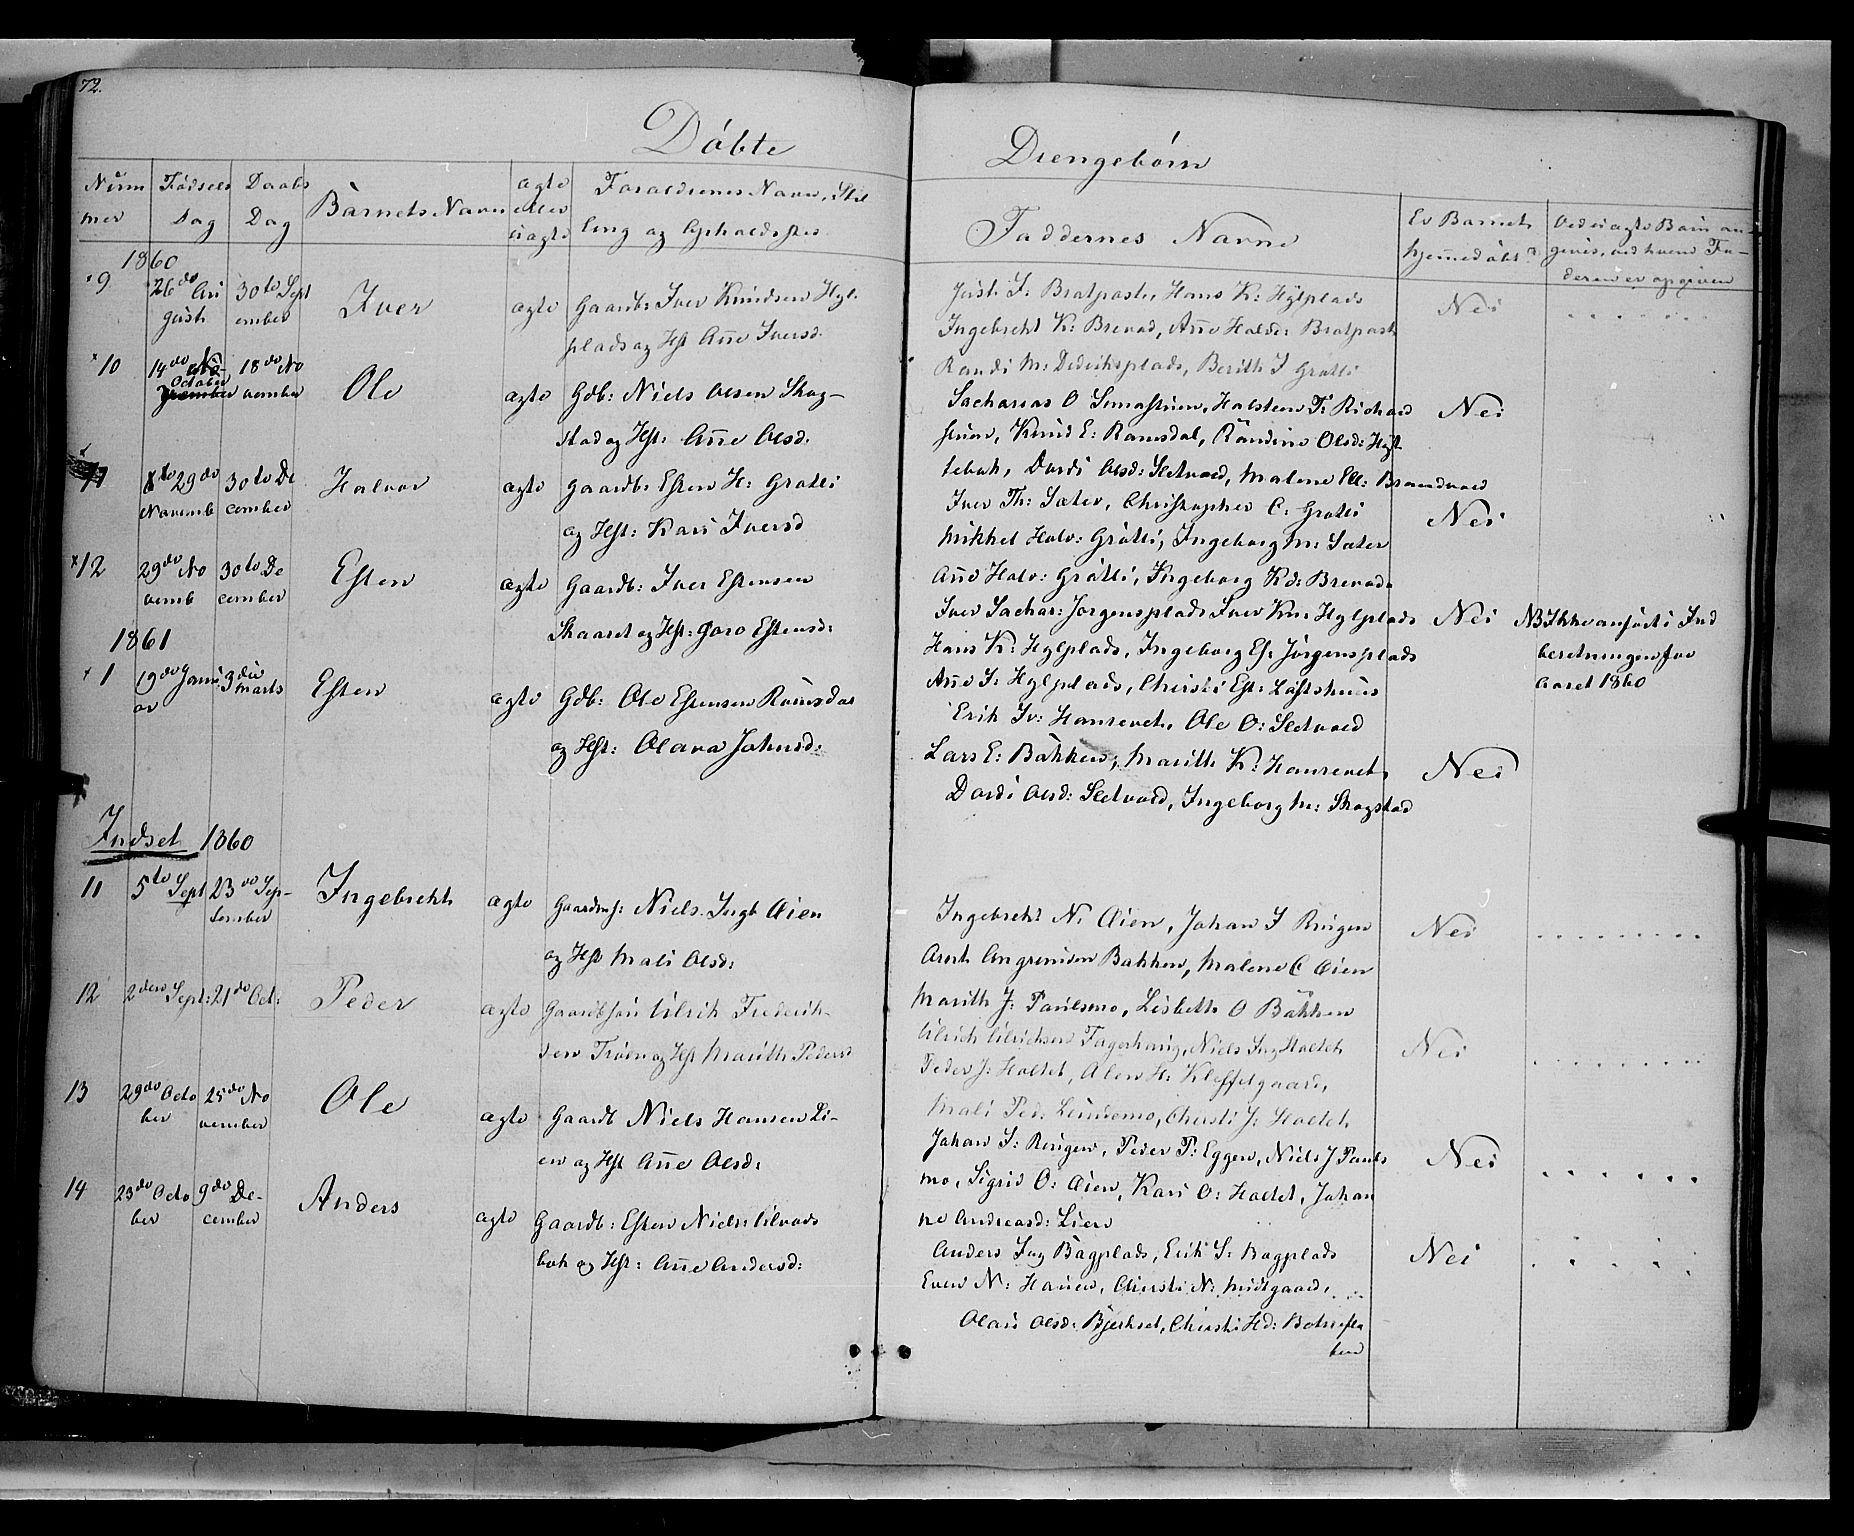 72.
Döbte
Drengebörn
Num
mer
Födsels
Dag
Daabs
Dag
Barnets Navn
ægte
eller
uægte
Forældrenes Navn, Stil
ling og Opholdssted
Faddernes Navne
Er Barnet
hjemmedöbt?
Ved uægte Børn an-
gives, ved hvem Fa-
deren er opgiven
1860
9
26de Au
gust
30te Sept
ember
Iver
ægte
Gaardb: Iver Knudsen Hyl-
plads og Hst Añe Iversd.
Just I: Bratpast, Hans K: Hylplads
Ingebrecht K: Brevad, Añe Halds: Bratpast
Randi M: Dideriksplads, Berith I Grøtli
Nei
10
14de
October
18de No
vember
Ole
ægte
Gdb: Niels Olsen Skog-
stad og Hst: Añe Olsd:
Sacharias O Innastuen, Halsten T: Richard
stuen, Knud E: Ramsdal, Randine Olsd: Hyt
tebak, Dordi Olsd: Sletvold, Malene Ell: Brandvold
Nei
11
29de
Novemb
30te De
cember
Halvor
ægte
Gaardb: Esten H: Grøtli
og Hst: Kari Iversd
Iver Th: Sæter, Christopher C: Grøtli
Mikkel Halv: Grøtli, Ingeborg M: Sæter
Añe Halv: Grøtli, Ingeborg Kd: Brevad
Nei
12
29de No
vemb
30te De
cember
Esten
ægte
Gaardb: Iver Estensen
Skaaret og Hst: Goro Estensd:
Iver Sachar: Jörgensplads Iver Kn: Hylplads
Hans K: Hylplads, Ingeborg Es: Jörgensplads
Añe I: Hylplads, Chirsti Est: Løftshuus
Nei
NB Ikke anført i Ind
beretningen for
Aaret 1860
1861
1
19de Janu
ar
3die
Marts
Esten
ægte
Gdb: Ole Estensen Ramsdal
og Hst: Olava Johnsd:
Erik Iv: Haurevet, Ole O: Sletvold
Lars E: Bakken, Marith K: Haurevet
Dordi Olsd: Sletvold, Ingeborg M: Skogstad
Nei
Indset 1860
11
5te Sept
23de Sep-
tember
Ingebrecht
ægte
Gaardm: Niels Ingb Øien
og Hst Mali Olsd:
Ingebrecht N: Øien, Johan I Ringen
Arnt Angrimsen Bakken, Malene C Øien
Marith J: Paulsmo, Lisbeth O Bakken
Nei
12
2den Sept:
21de Oct:
Peder
ægte
Gaardbson Ulrik Frederik-
sen Trøen og Hst Marith Pedersd
Ulrich Ulrichsen Fagerhaug, Niels Ing Holtet
Peder J: Holtet, Alen H: Kleffelgaard,
Mali Ped: Lundsmo, Chirsti J: Holtet
Nei
13
29de Octo
ber
25de No
vember
Ole
ægte
Gaardb Niels Hansen Li-
en og Hst Añe Olsd:
Johan I: Ringen, Peder P: Eggen, Niels J Pauls
mo, Sigrid O: Øien, Kari O: Holtet, Johan
ne Andreasd: Lien
Nei
14
23de Octo
ber
9de De-
cember
Anders
ægte
Gaardb: Esten Niels: Ulvads
bak og Hst: Añe Andersd:
Anders Ing Bagplads, Erik I: Bagplads
Even N: Hauen, Chirsti N: Midtgaard,
Olava Olsd: Bjerkset, Chirsti Hd:
Nei